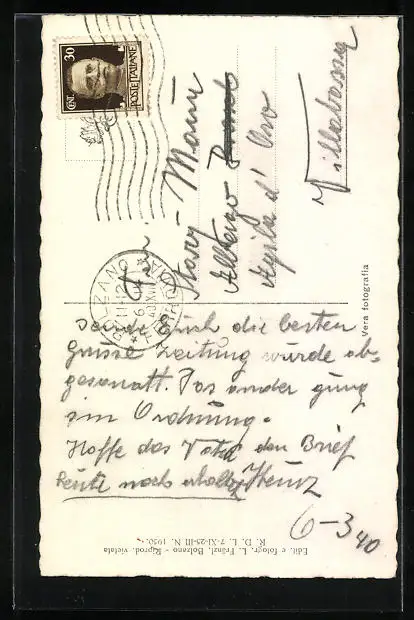 CENT. 30
POSTE ITALIANE
BOLZANO
Stary - Mair
Albergo
Aquila d'Oro
Villabassa
Sende Euch die besten
Grüsse Zeitung wurde ab-
gesandt. Das ander ging
in Ordnung.
Hoffe das Vater den Brief
heute noch Heinz
6-3 40
Vera fotografia
Edit. e fotogr. L. Fränzl. Bolzano - Riprod. vietata
R. D. L. 7-XI-25-III N. 1950.